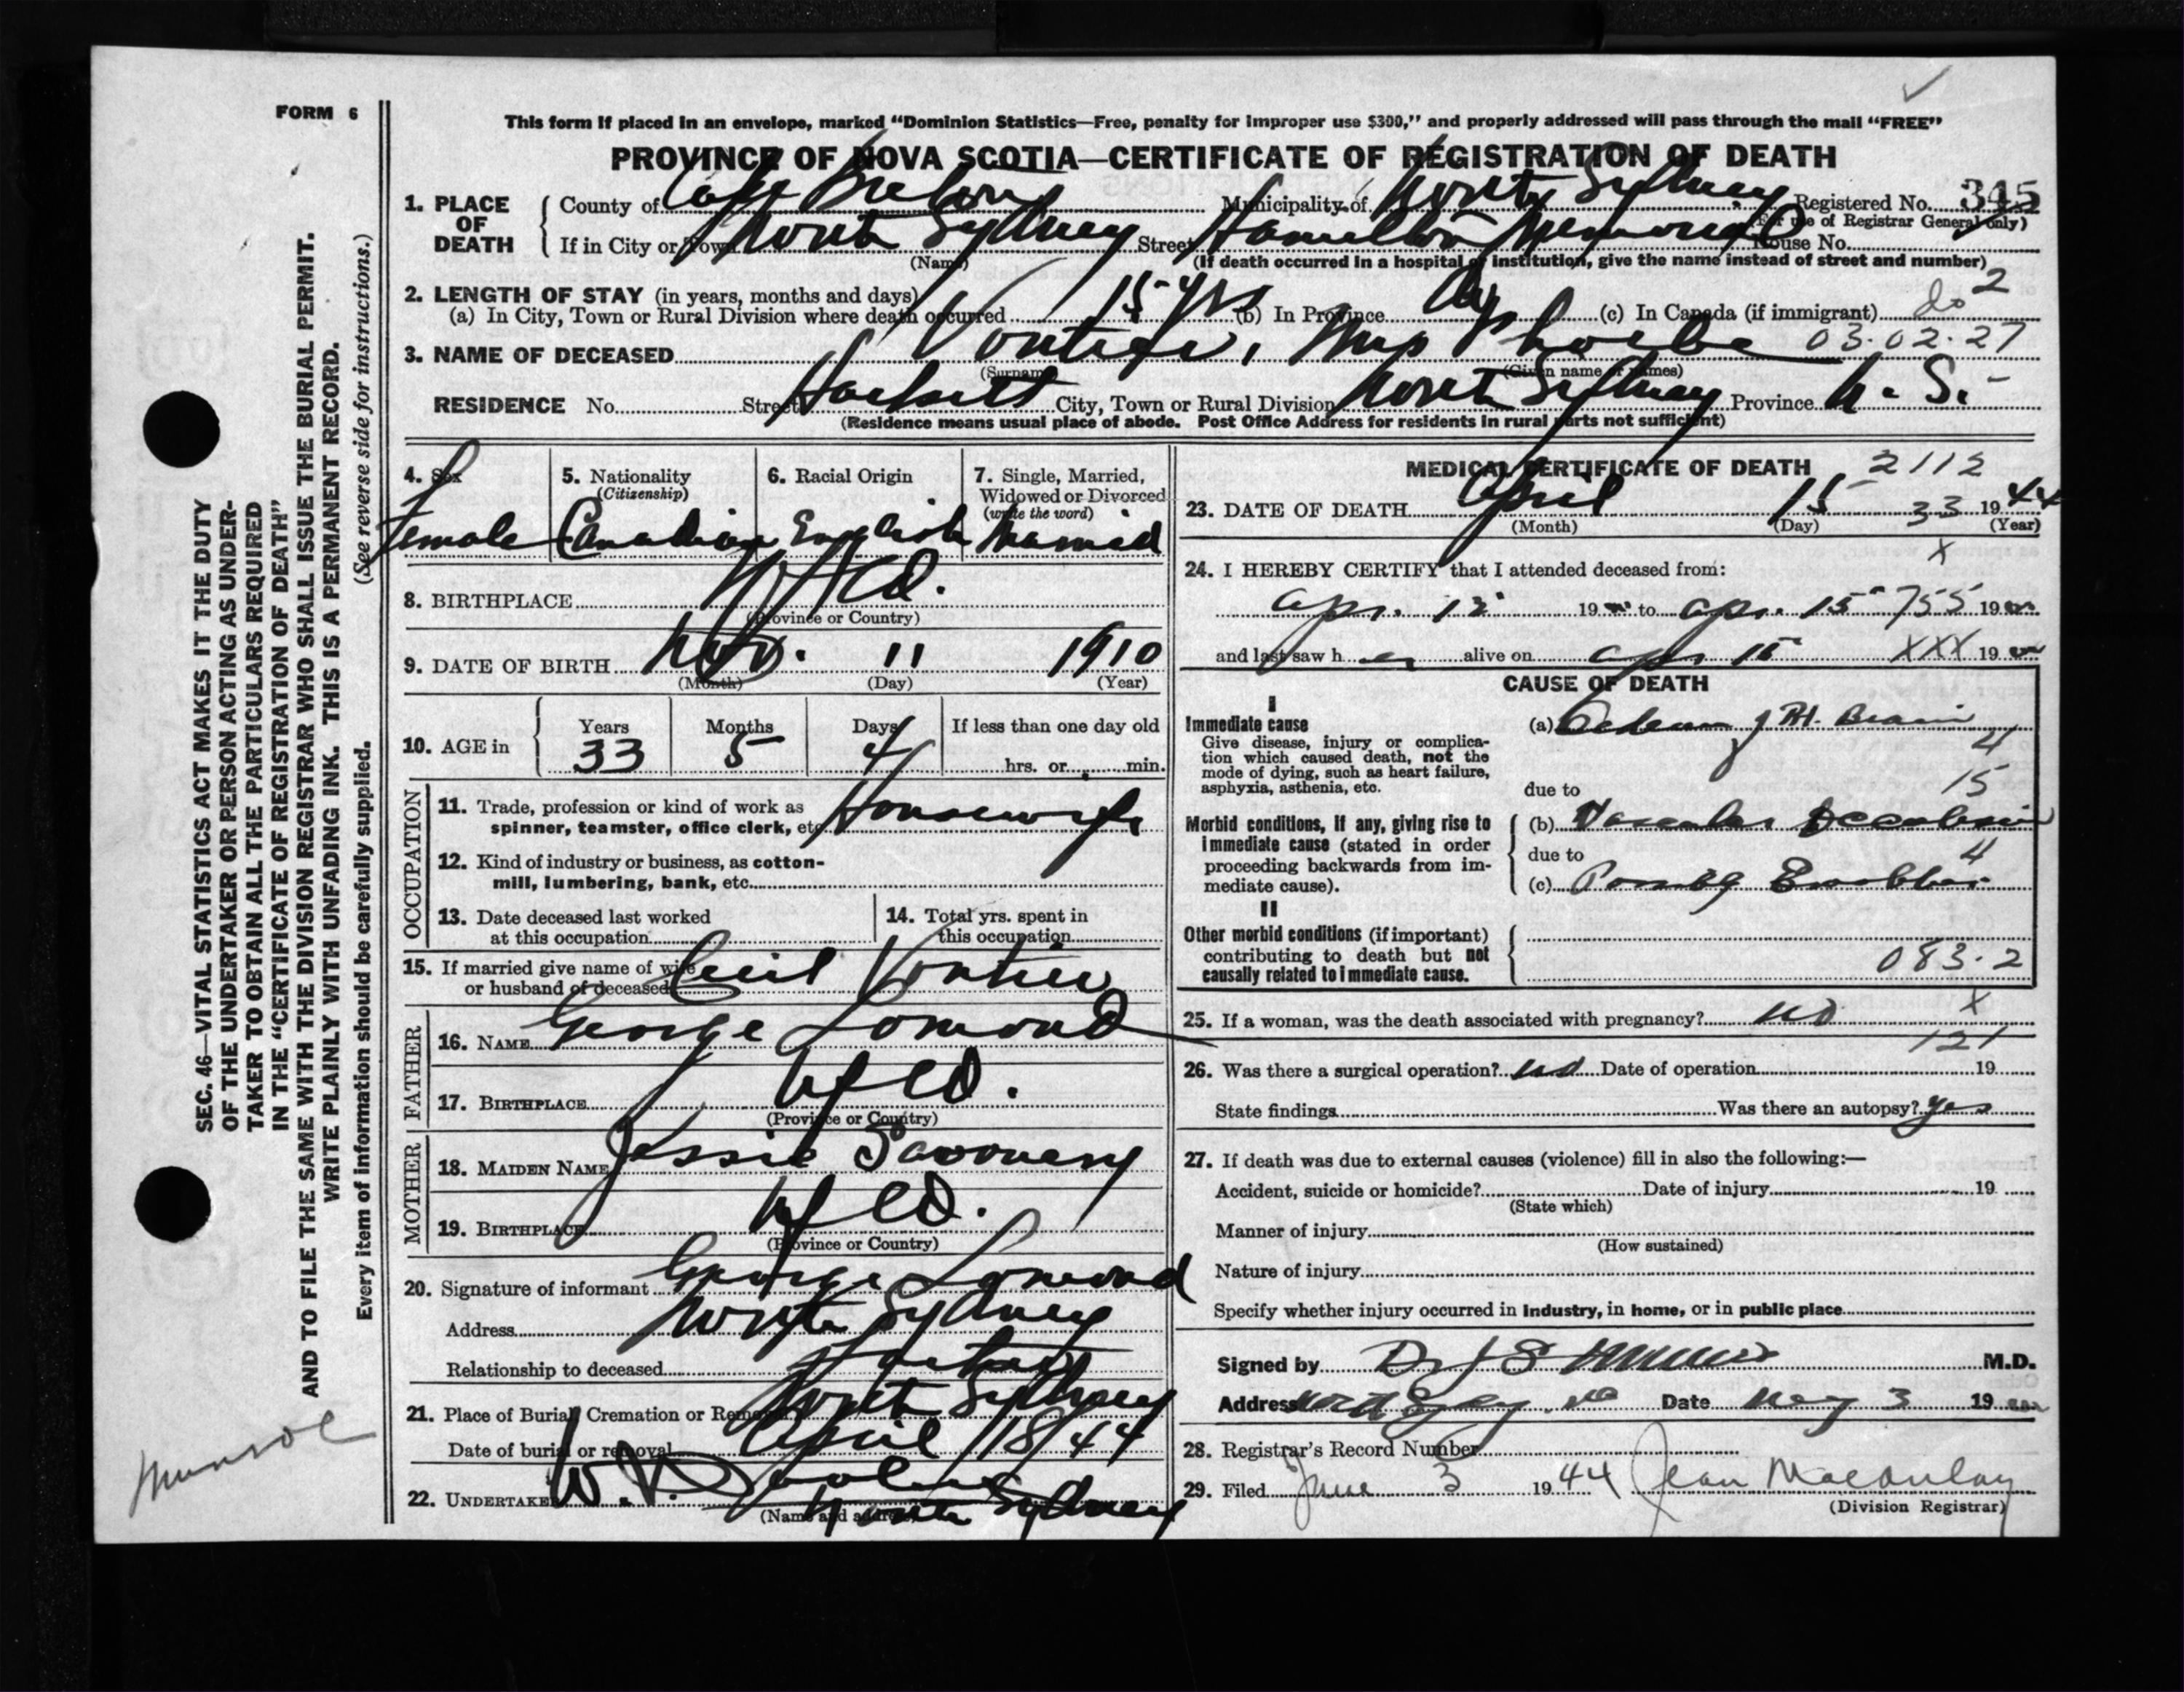 FORM 6
This form if placed in an envelope, marked "Dominion Statistics—Free, penalty for improper use $300," and properly addressed will pass through the mail "FREE"
PROVINCE OF NOVA SCOTIA—CERTIFICATE OF REGISTRATION OF DEATH
1. PLACE OF DEATH County of Cape Breton Municipality of North Sydney Registered No. 345
(For use of Registrar General only)
If in City or Town North Sydney Street Hamilton Memorial House No.
(Name) (If death occurred in a hospital or institution, give the name instead of street and number)
2. LENGTH OF STAY (in years, months and days) 2
(a) In City, Town or Rural Division where death occurred 15 yrs (b) In Province (c) In Canada (if immigrant) do
3. NAME OF DECEASED Vontier, Mrs Phoebe 03.02.27
(Surname) (Given name or names)
RESIDENCE No. Street Hackett City, Town or Rural Division North Sydney Province N. S.
(Residence means usual place of abode. Post Office Address for residents in rural parts not sufficient)
4. Sex Female
5. Nationality (Citizenship) Canadian
6. Racial Origin English
7. Single, Married, Widowed or Divorced (write the word) Married
8. BIRTHPLACE Nfld.
(Province or Country)
9. DATE OF BIRTH Nov. 11 1910
(Month) (Day) (Year)
10. AGE in Years 33 Months 5 Days 4 If less than one day old
hrs. or min.
OCCUPATION
11. Trade, profession or kind of work as spinner, teamster, office clerk, etc. Housewife
12. Kind of industry or business, as cotton-
mill, lumbering, bank, etc.
13. Date deceased last worked
at this occupation
14. Total yrs. spent in
this occupation
15. If married give name of wife
or husband of deceased Cecil Vontier
FATHER
16. NAME George Lomond
17. BIRTHPLACE Nfld.
(Province or Country)
MOTHER
18. MAIDEN NAME Jessie Savoury
19. BIRTHPLACE Nfld.
(Province or Country)
20. Signature of informant George Lomond
Address North Sydney
Relationship to deceased
21. Place of Burial, Cremation or Removal North Sydney
Date of burial or removal April 18/44
22. UNDERTAKER W. J. North Sydney
(Name and address)
MEDICAL CERTIFICATE OF DEATH 2112
23. DATE OF DEATH April 15 33 1944
(Month) (Day) (Year)
X
24. I HEREBY CERTIFY that I attended deceased from:
Apr. 12 19 to Apr. 15 755 19
and last saw h er alive on Apr 15 XXX 19
CAUSE OF DEATH
I
Immediate cause
Give disease, injury or complica-
tion which caused death, not the
mode of dying, such as heart failure,
asphyxia, asthenia, etc.
(a) Oedema of Rt. Brain
4
due to 15
Morbid conditions, if any, giving rise to
immediate cause (stated in order
proceeding backwards from im-
mediate cause).
(b) Vascular Occlusion
due to 4
(c) Possibly Embolus
II
Other morbid conditions (if important)
contributing to death but not
causally related to immediate cause.
083.2
X
25. If a woman, was the death associated with pregnancy? no
121
26. Was there a surgical operation? no Date of operation 19
State findings Was there an autopsy? Yes
27. If death was due to external causes (violence) fill in also the following:—
Accident, suicide or homicide? Date of injury 19
(State which)
Manner of injury
(How sustained)
Nature of injury
Specify whether injury occurred in industry, in home, or in public place
Signed by Dr M.D.
Address North Sydney. NS Date May 3 19
28. Registrar's Record Number
29. Filed June 3 1944 Jean Macaulay
(Division Registrar)
SEC. 46—VITAL STATISTICS ACT MAKES IT THE DUTY
OF THE UNDERTAKER OR PERSON ACTING AS UNDER-
TAKER TO OBTAIN ALL THE PARTICULARS REQUIRED
IN THE "CERTIFICATE OF REGISTRATION OF DEATH"
AND TO FILE THE SAME WITH THE DIVISION REGISTRAR WHO SHALL ISSUE THE BURIAL PERMIT.
WRITE PLAINLY WITH UNFADING INK. THIS IS A PERMANENT RECORD.
Every item of information should be carefully supplied. (See reverse side for instructions.)
Munroe